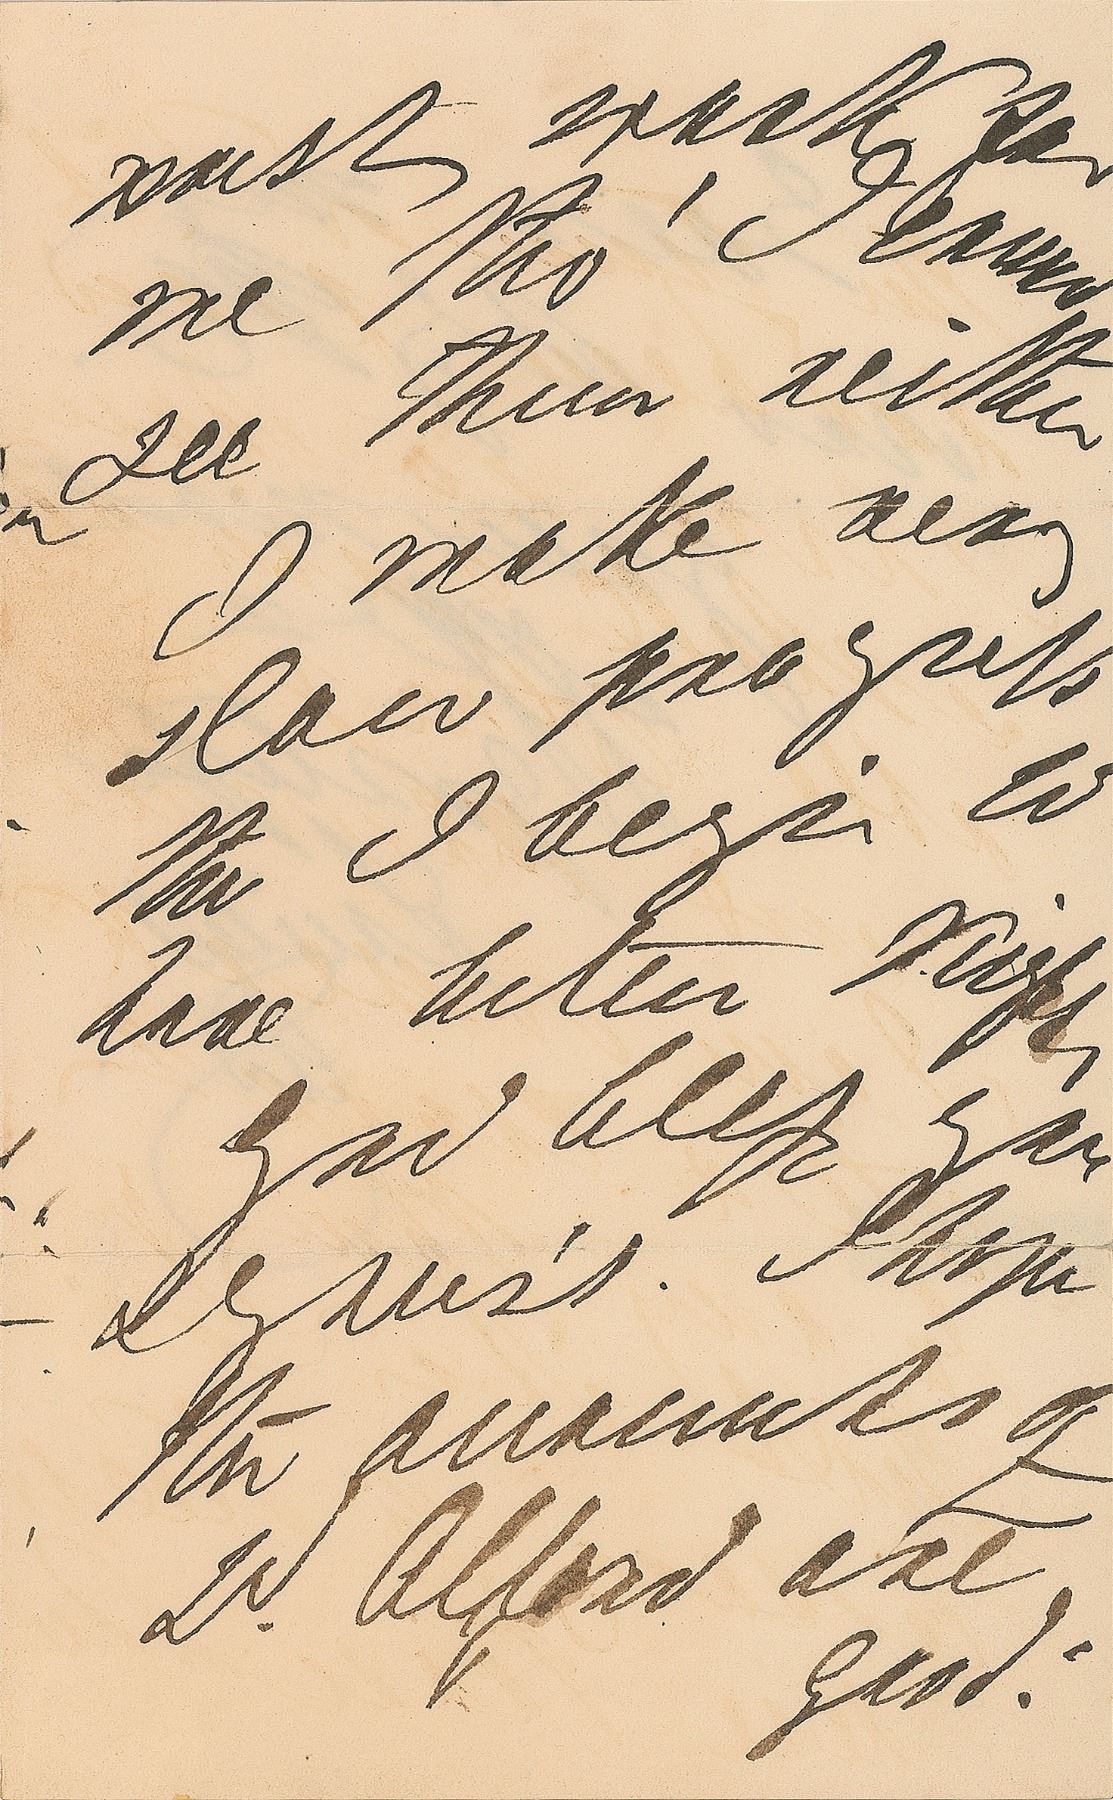 must, work for
me tho' I cannot
see them neither
I make very
slow progress
tho I begin to
have better nights
God bless you
& yours. I hope
the accounts of
Ld. Alford are
good.